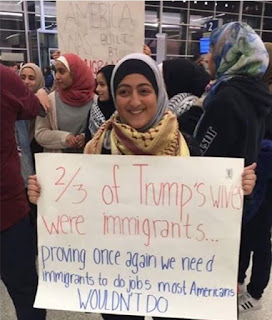 AMERICA
WAS BUILT
BY
IMMIGRANTS
2/3 of Trump's wives
were immigrants...
proving once again we need
immigrants to do jobs most Americans
WOULDN'T DO